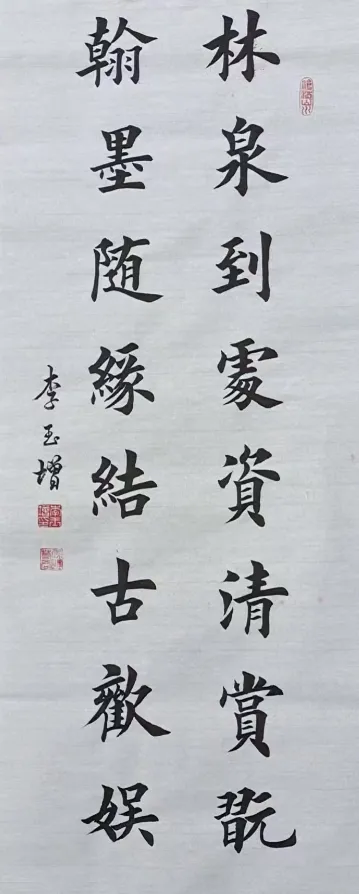 林泉到處資清賞翫
翰墨随緣結古歡娱
李玉增